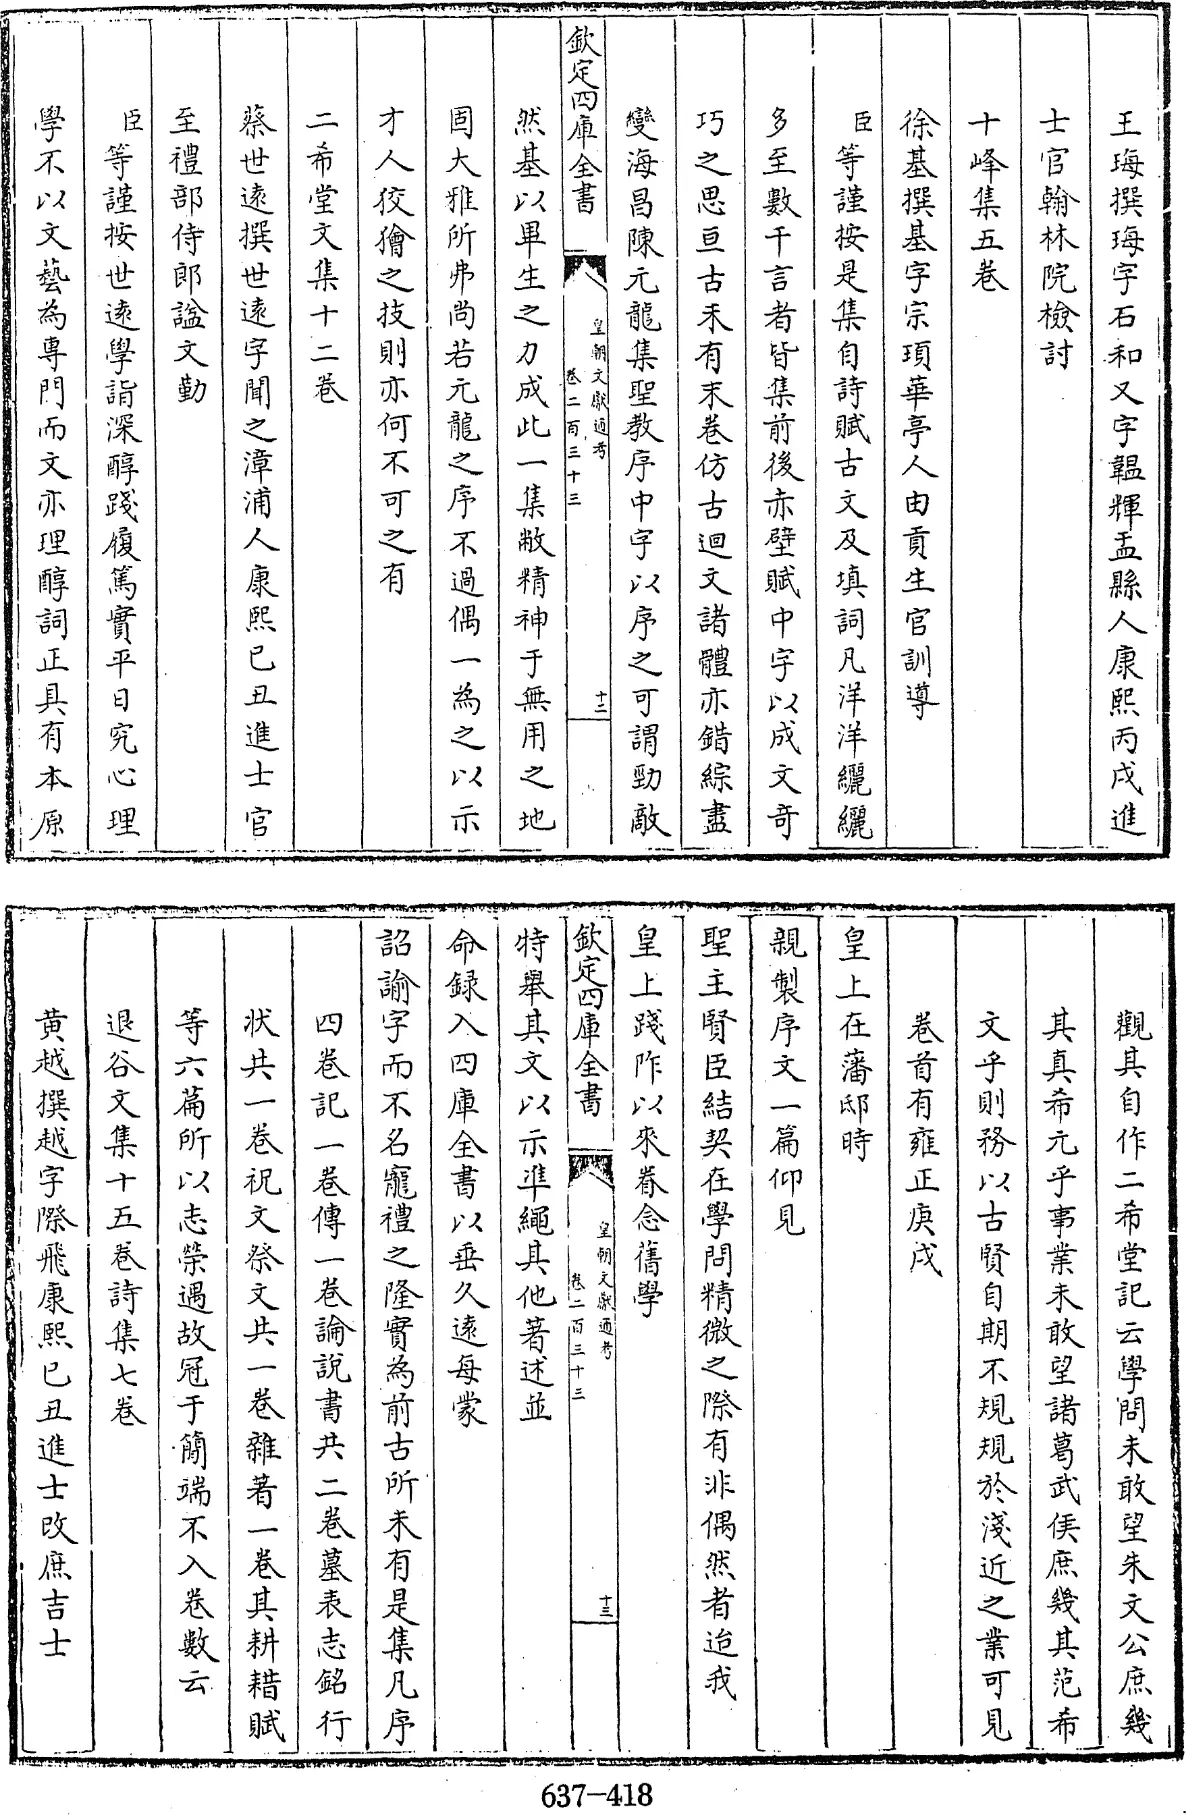 王珻撰珻字石和又字韞輝盂縣人康熙丙戌進
士官翰林院檢討
十峰集五卷
徐基撰基字宗頊華亭人由貢生官訓導
臣等謹按是集自詩賦古文及填詞凡洋洋纚纚
多至數千言者皆集前後赤壁賦中字以成文奇
巧之思亘古未有末卷仿古迴文諸體亦錯綜盡
變海昌陳元龍集聖教序中字以序之可謂勁敵
欽定四庫全書
皇朝文獻通考
卷二百三十三
十二
然基以畢生之力成此一集敝精神于無用之地
固大雅所弗尚若元龍之序不過偶一為之以示
才人狡獪之技則亦何不可之有
二希堂文集十二卷
蔡世遠撰世遠字聞之漳浦人康熙已丑進士官
至禮部侍郎諡文勤
臣等謹按世遠學詣深醇踐履篤實平日究心理
學不以文藝為專門而文亦理醇詞正具有本原
觀其自作二希堂記云學問未敢望朱文公庶幾
其真希元乎事業未敢望諸葛武侯庶幾其范希
文乎則務以古賢自期不規規於淺近之業可見
卷首有雍正庚戌
皇上在藩邸時
親製序文一篇仰見
聖主賢臣結契在學問精微之際有非偶然者迨我
皇上踐阼以來眷念舊學
欽定四庫全書
皇朝文獻通考
卷二百三十三
十三
特舉其文以示準繩其他著述並
命録入四庫全書以垂久遠每蒙
詔諭字而不名寵禮之隆實為前古所未有是集凡序
四卷記一卷傳一卷論說書共二卷墓表志銘行
狀共一卷祝文祭文共一卷雜著一卷其耕耤賦
等六篇所以志榮遇故冠于簡端不入卷數云
退谷文集十五卷詩集七卷
黄越撰越字際飛康熙已丑進士改庶吉士
637-418